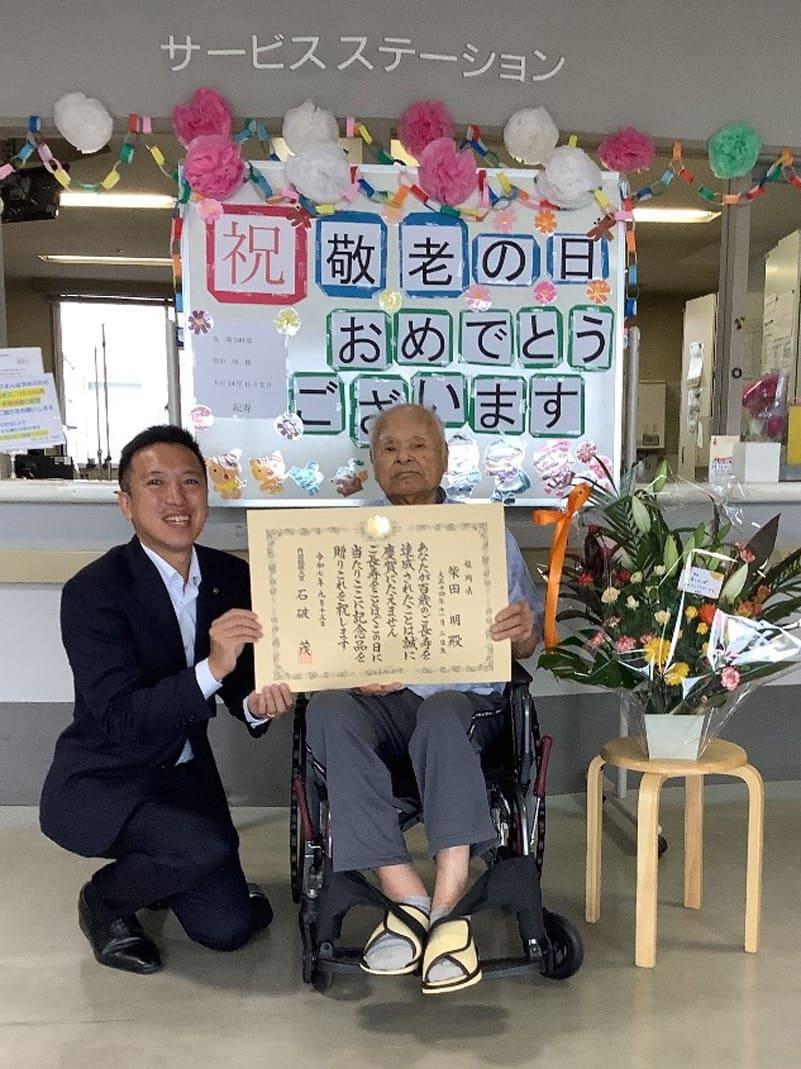 サービスステーション
祝 敬老の日
おめでとう
ございます
満100歳
紀寿
福岡県
柴田 明殿
大正十四年十一月二日生
あなたが百歳のご長寿を
達成されたことは誠に
慶賀にたえません
ご長寿をことほぐこの日に
当たりここに記念品を
贈りこれを祝します
令和七年九月十五日
内閣総理大臣 石破 茂